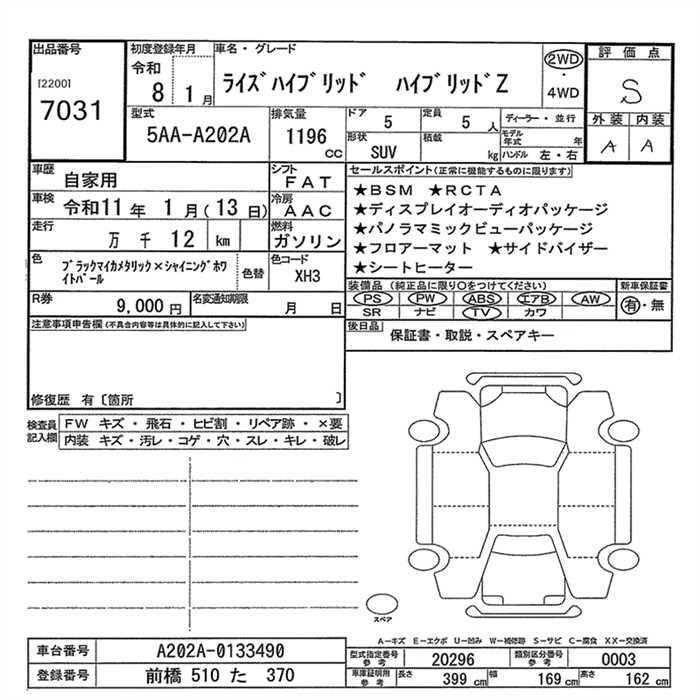 出品番号
[2200]
7031
初度登録年月
令和
8 1 月
車名・グレード
ライズハイブリッド ハイブリッドZ
2WD
・
4WD
評価点
S
外装 内装
A A
型式
5AA-A202A
排気量
1196
CC
ドア
5
定員
5 人
形状
SUV
積載
kg
ディーラー・並行
モデル
年式 年
ハンドル 左・右
車歴
自家用
シフト
FAT
車検
令和11年 1月(13日)
冷房
AAC
走行
万 千 12 km
燃料
ガソリン
色
ブラックマイカメタリック×シャイニングホワ
イトパール
色替
色コード
XH3
R券
9,000 円
名変通知期限
月 日
セールスポイント(正常に機能するものに限ります)
★BSM ★RCTA
★ディスプレイオーディオパッケージ
★パノラマミックビューパッケージ
★フロアーマット ★サイドバイザー
★シートヒーター
装備品(純正品に限り〇をつけてください)
PS PW ABS エアB AW
SR ナビ TV カワ
新車保証書
有・無
後日品
保証書・取説・スペアキー
注意事項申告欄(不具合内容等は具体的に記入して下さい)
修復歴 有〔箇所 〕
検査員
記入欄
FW キズ・飛石・ヒビ割・リペア跡・×要
内装 キズ・汚レ・コゲ・穴・スレ・キレ・破レ
スペア
A―キズ E―エクボ U―凹み W―補修跡 S―サビ C―腐食 XX―交換済
車台番号
A202A-0133490
登録番号
前橋 510 た 370
型式指定番号
参考
20296
類別区分番号
参考
0003
車庫証明用
参考
長さ 399 cm 幅 169 cm 高さ 162 cm